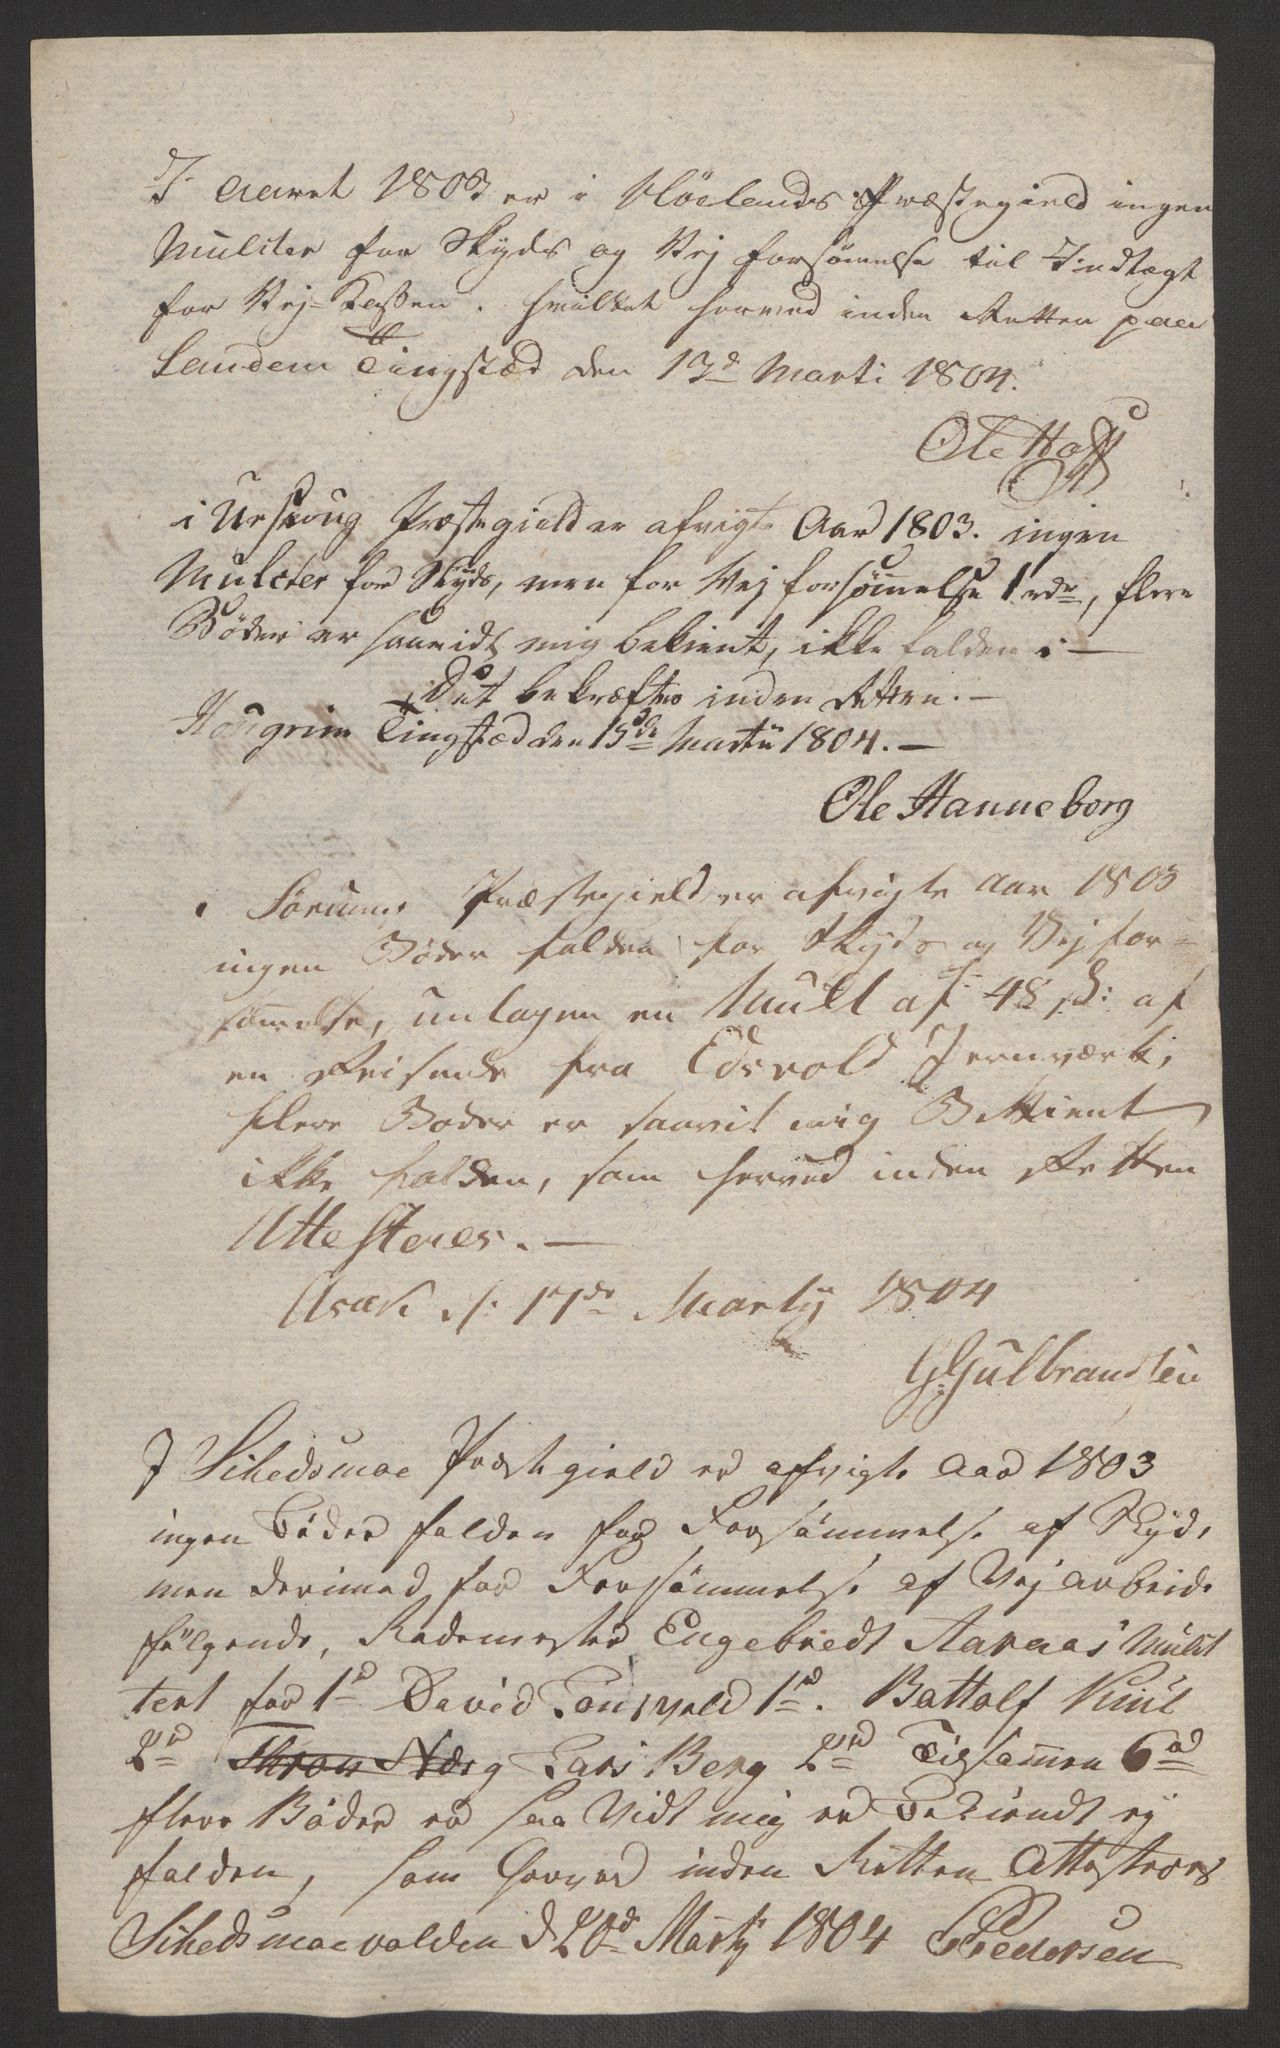 I Aaret 1803 er i Høelands Præstegield ingen
Mulcter for Skyds og Vej forsømmelse til Indtægt
for Vej-Cassen. hvilket herved inden Retten paa
Sandem Tingstæd den 13d Marti 1804.
Ole Hoff
i Urskoug Præstegield er afvigte Aar 1803. ingen
Mulcter for Skyds, men for Vej forsømmelse 1 rdr, flere
Bøder er saavidt mig bekient, ikke falden i —
Det bekræftes inden Retten. —
Hougrim Tingstæd den 15de Martii 1804. —
Ole Hanneborg
i Sørums Præstegield er afvigte Aar 1803
ingen Bøder falden for Skyds og Vejfor-
sømmelse, undtagen en Mult af 48 s: af
en Reisende fra Edsvold Jernværk,
flere Bøder er saavit mig Bekient
ikke falden, som herved inden Retten
Attesteres. —
Asak d: 17de Martij 1804
G. Gulbrandsen
I Schedsmoe Præstegield er afvigte Aar 1803
ingen Bøder falden for Forsømmelse af Skyds,
men derimod for Forsømmelse af Vejarbeide
følgende, Rodemester Engebredt Aaraas Mulct
tert for 1rd David Tonsvold 1rd. Battolf Kiul
2rd Thron Næs Lars Berg 2rd Tilsammen 6rd
flere Bøder er saa Vidt mig er Bekiendt ey
falden, som herved inden Retten Attesteres
Schedsmoevolden d 20d Martij 1804 Pedersen